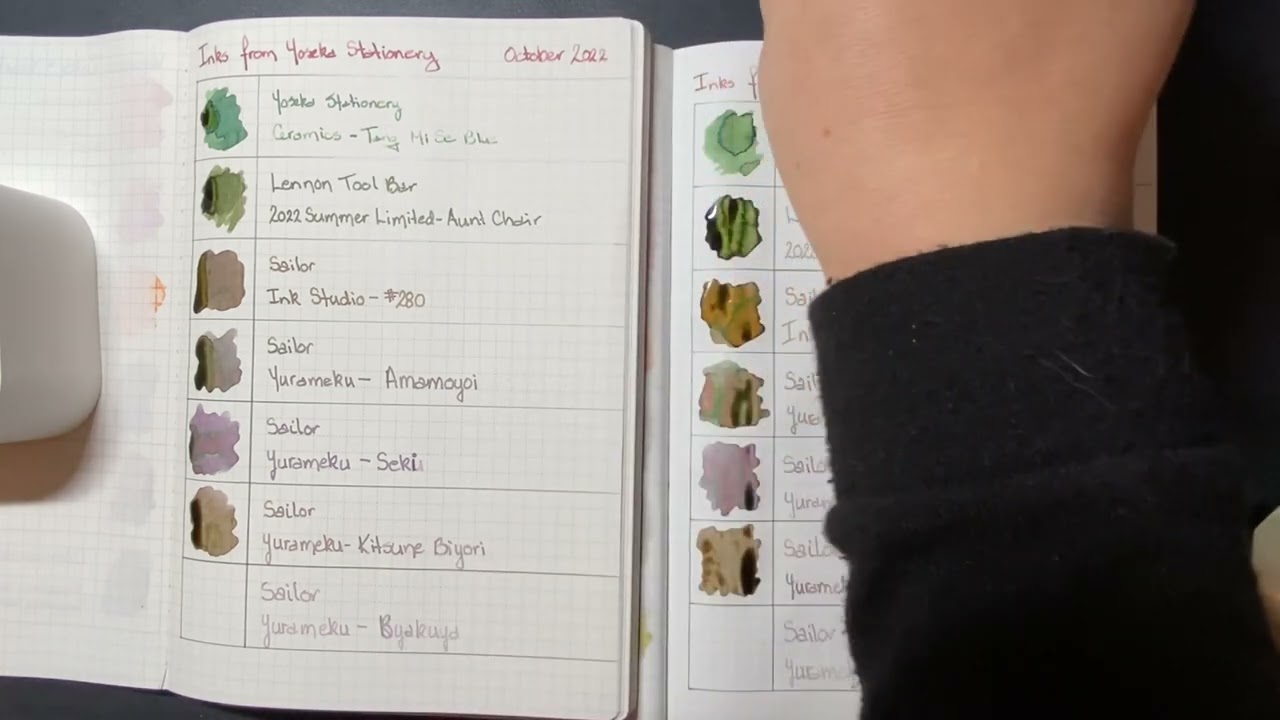 Inks from Yoseka Stationery
October 2022
Yoseka Stationery
Ceramics - Tang Mi Se Blue
Lennon Tool Bar
2022 Summer Limited - Aunt Chair
Sailor
Ink Studio - #280
Sailor
Yurameku - Amamoyoi
Sailor
Yurameku - Seki
Sailor
Yurameku - Kitsune Biyori
Sailor
Yurameku - Byakuya
Inks f
L
202
Sai
In
Sail
Yura
Sailo
Yuram
Sailo
Yuramek
Sailor
Yurameku